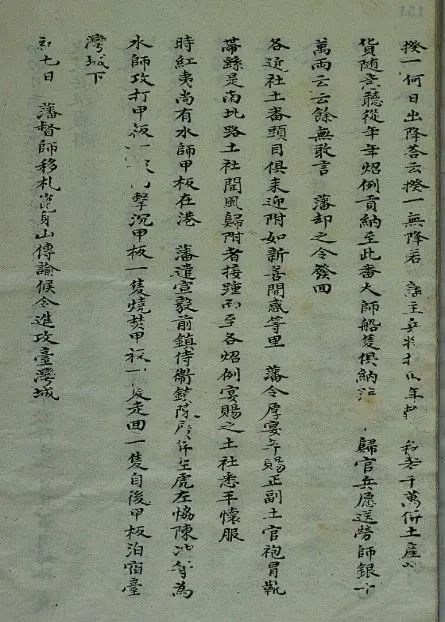 揆一何日出降荅云揆一無降若 藩主年 和若干萬併土産
貨随意聽從年年炤例貢納至此番大師船隻俱納 歸官兵愿送勞師銀十
萬兩云云餘無敢言 藩却之令發回
各近社土番頭目俱来迎附如新善開感等里 藩令厚宴并賜正副土官袍冒靴
帶繇是南北路土社聞風歸附者接踵而至各炤例宴賜之土社悉平懷服
時紅夷尚有水師甲板在港 藩遣宣毅前鎮侍衛鎮陳廣併左虎左協陳冲等為
水師攻打甲板 擊沉甲板一隻燒焚甲板一走回一隻自後甲板泊宿臺
灣城下
初七日 藩督師移札崑身山傳諭候令進攻臺灣城